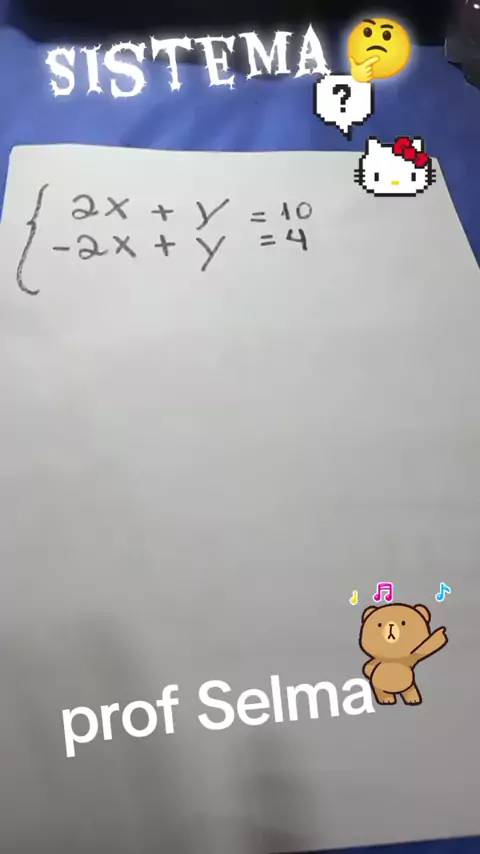 SISTEMA
?
2x + y = 10
-2x + y = 4
prof Selma